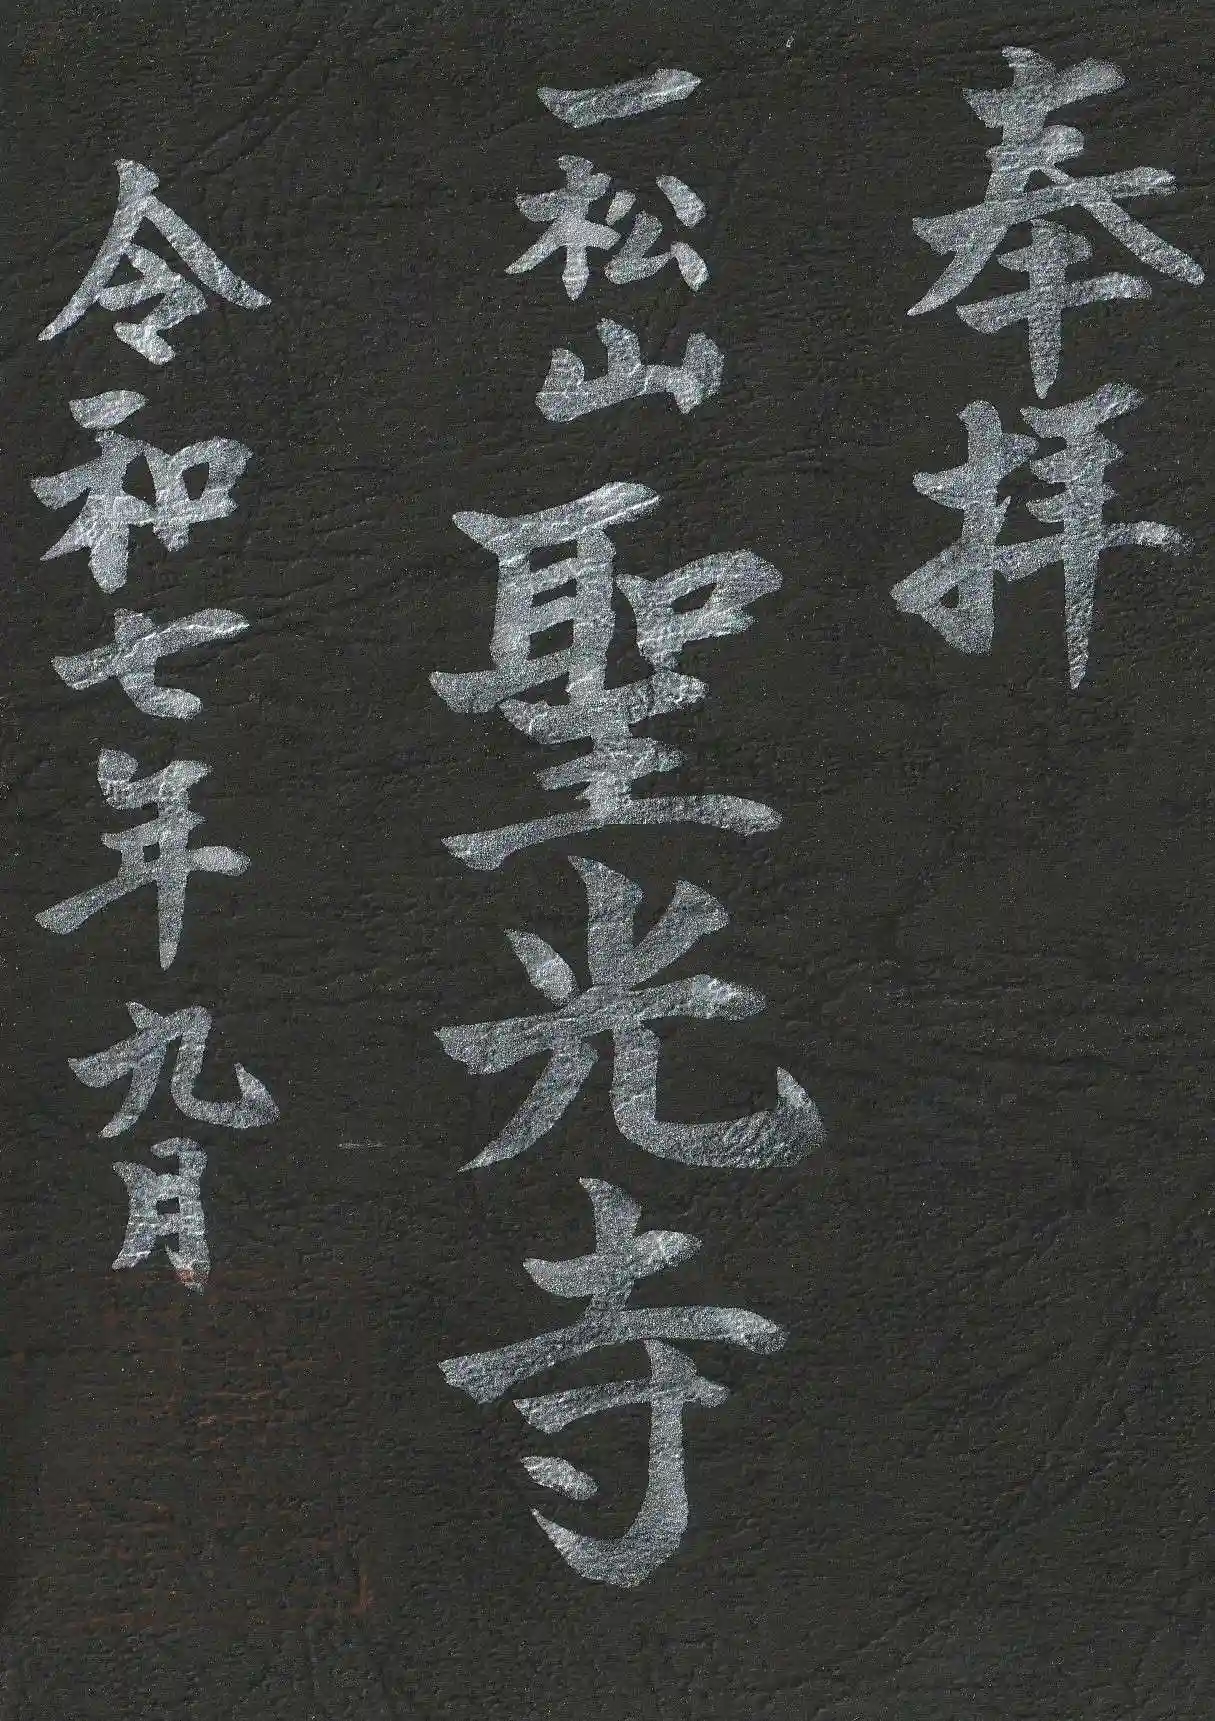 奉拝
一松山 聖光寺
令和七年九月